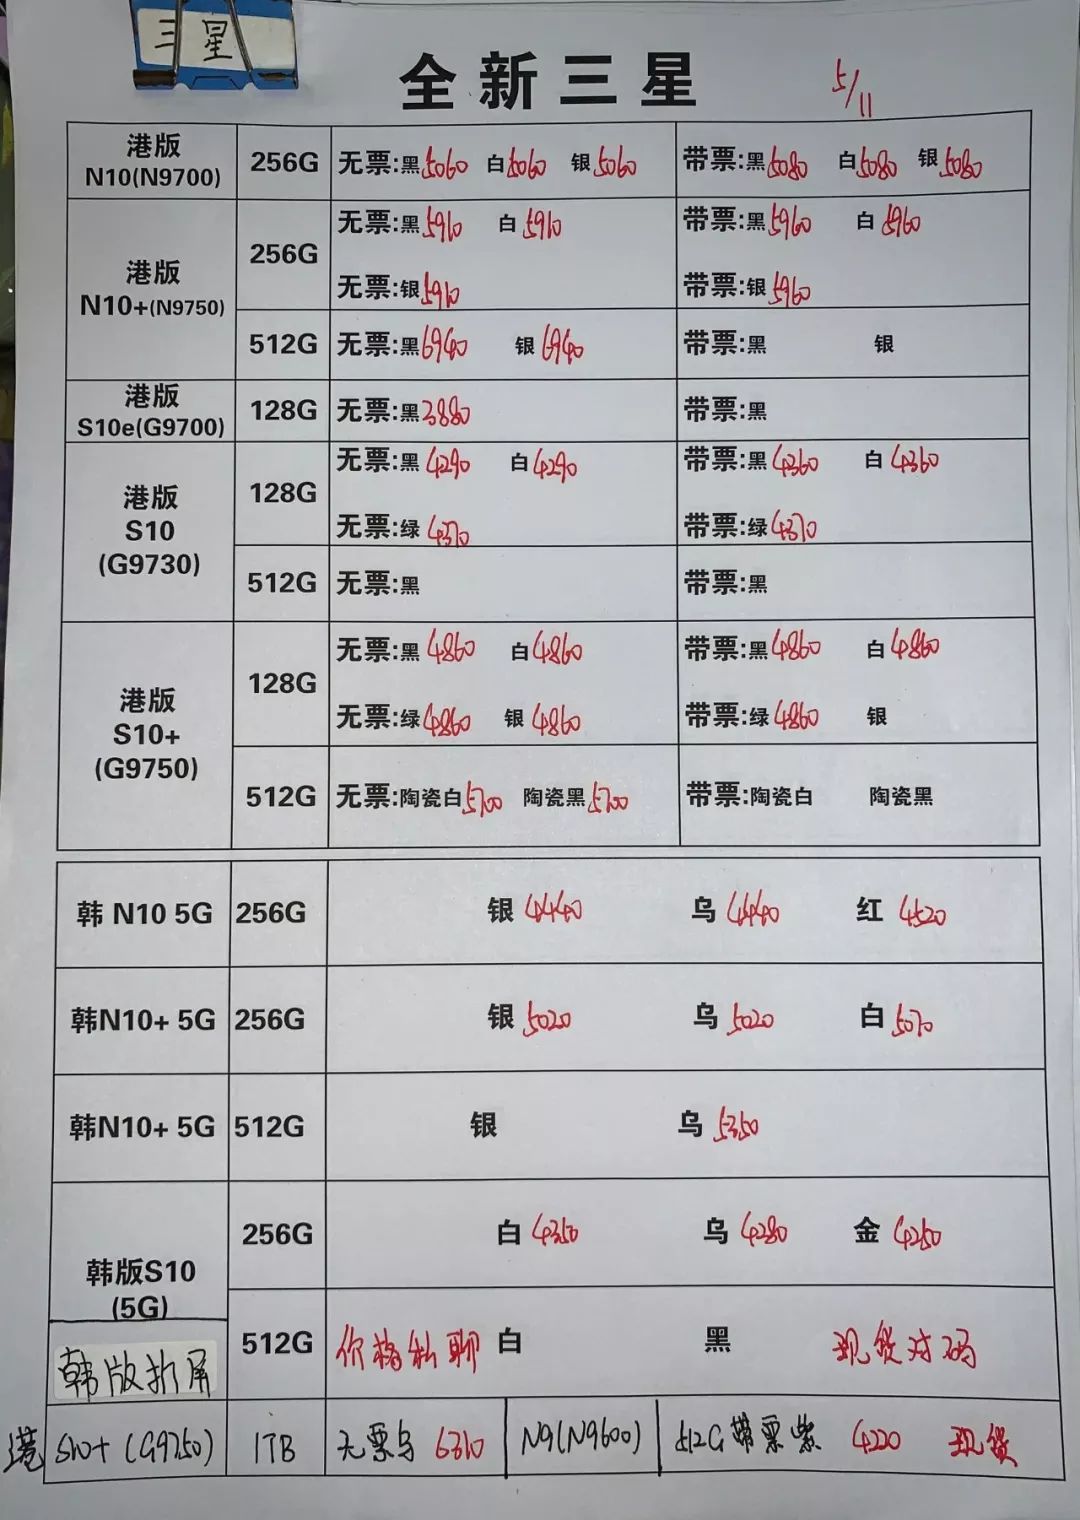 三星
全新三星 5/11
港版 N10(N9700) 256G 无票:黑5060 白5060 银5060 带票:黑5080 白5080 银5080
港版 N10+(N9750) 256G 无票:黑5910 白5910 带票:黑5960 白5960
无票:银5910 带票:银5960
512G 无票:黑6940 银6940 带票:黑 银
港版 S10e(G9700) 128G 无票:黑3880 带票:黑
港版 S10 (G9730) 128G 无票:黑4290 白4290 带票:黑4360 白4360
无票:绿4370 带票:绿4370
512G 无票:黑 带票:黑
港版 S10+ (G9750) 128G 无票:黑4860 白4860 带票:黑4860 白4860
无票:绿4860 银4860 带票:绿4860 银
512G 无票:陶瓷白5700 陶瓷黑5700 带票:陶瓷白 陶瓷黑
韩 N10 5G 256G 银4440 乌4440 红4520
韩N10+ 5G 256G 银5020 乌5020 白5070
韩N10+ 5G 512G 银 乌5350
韩版S10 (5G) 256G 白4350 乌4280 金4250
韩版折屏 512G 价格私聊 白 黑 现货对码
港 S10+(G9750) 1TB 无票乌6310 N9(N9600) 512G带票紫 4220 现货